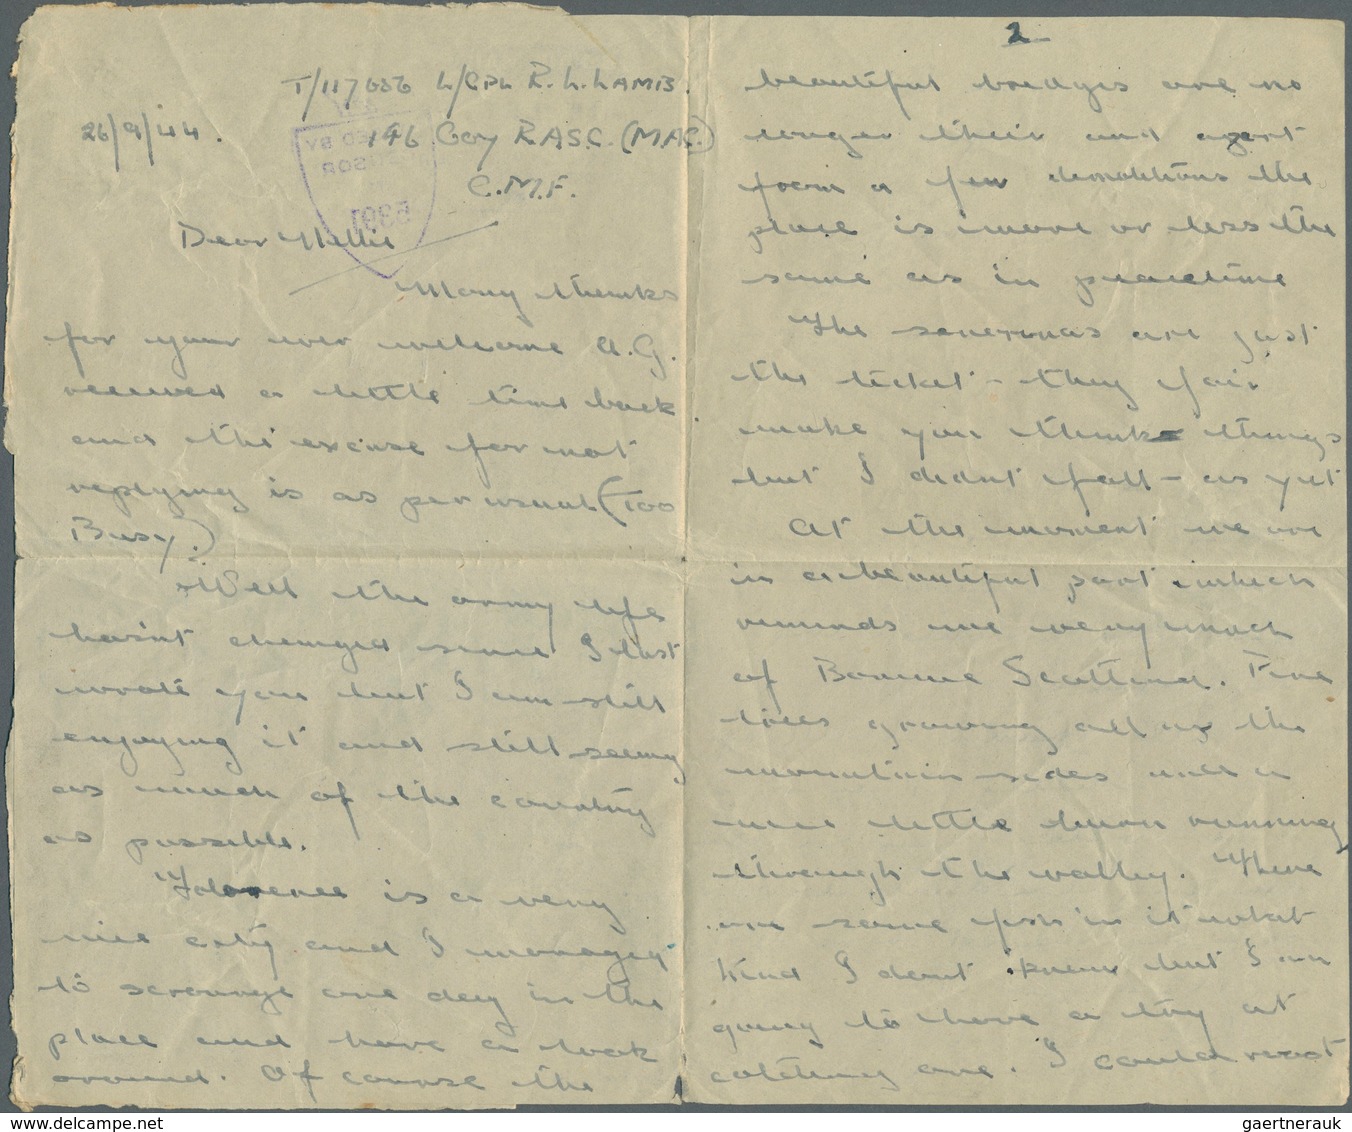 T/117686 L/CPL R.L. LAMB.
26/9/44.
146 Coy R.A.S.C. (MAC.)
C.M.F.
Dear Nellie
Many thanks
for your ever welcome A.G.
received a little time back
and the excuse for not
replying is as per usual (Too
Busy.)
Well the army life
hasn't changed since I last
wrote you but I am still
enjoying it and still seeing
as much of the country
as possible.
Florence is a very
nice city and I managed
to scrounge one day in the
place and have a look
around. Of course the
2
beautiful bridges are no
longer their and apart
from a few demolitions the
place is more or less the
same as in peacetime
The senorinas are just
the ticket - they fair
make you think things
but I didnt fall - as yet
At the moment we are
in a beautiful part which
reminds me very much
of Bonnie Scotland. Fine
trees growing all up the
mountain sides and a
nice little burn running
through the valley. There
are some fish in it what
kind I dont know but I am
going to have a try at
catching one. I could roast
gaertnerauk